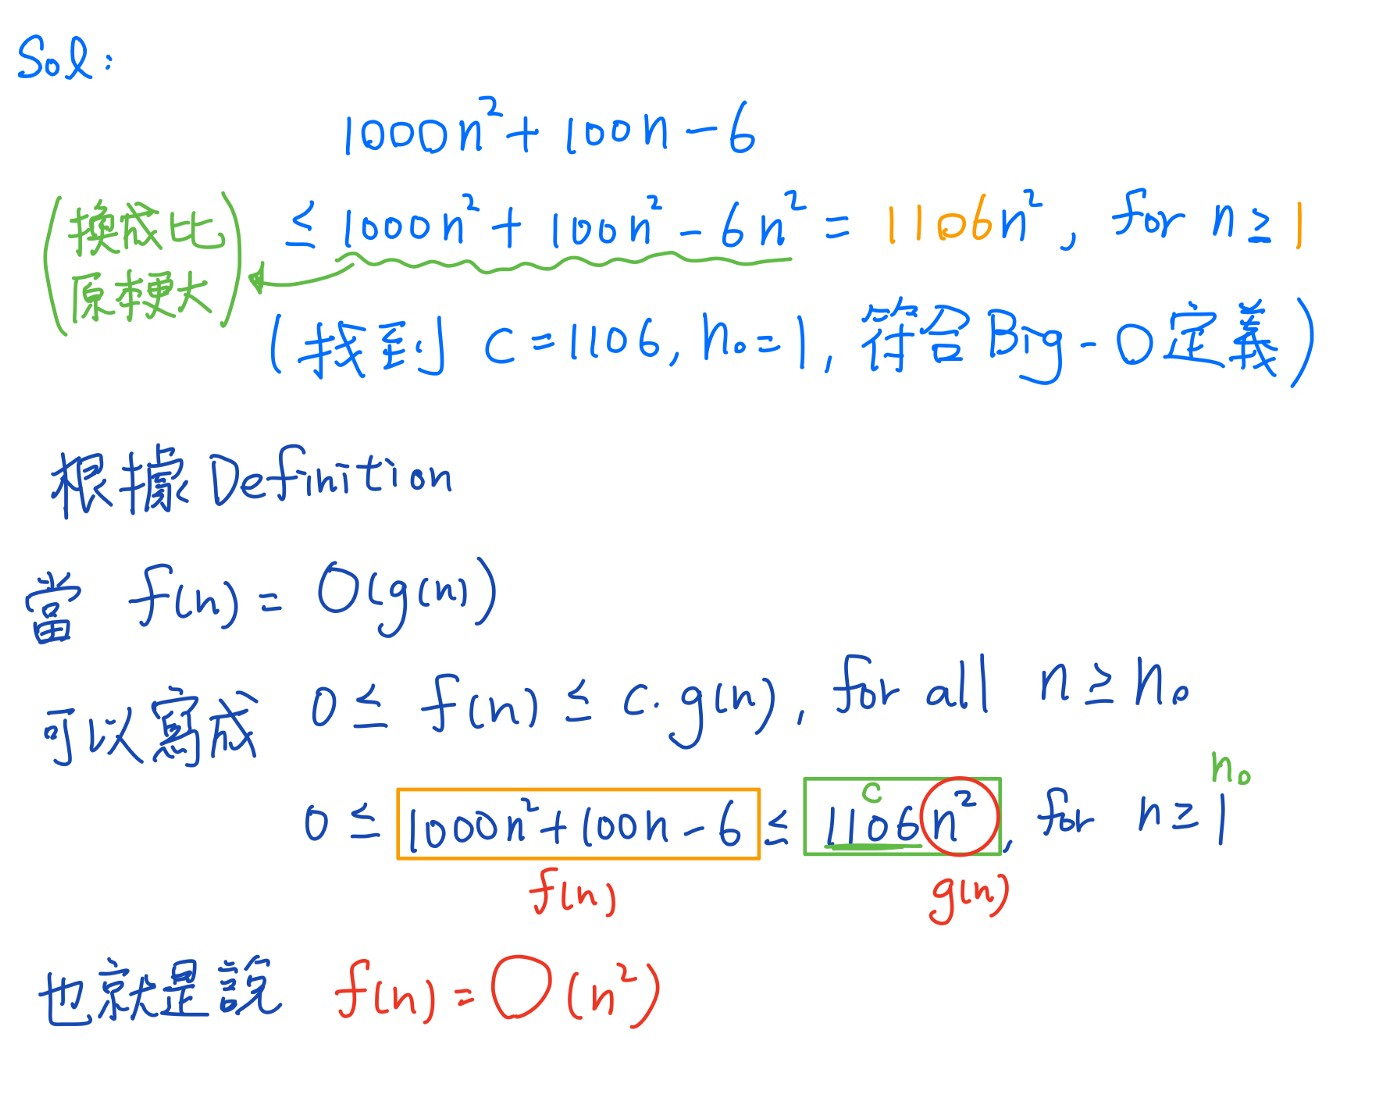 Sol:
1000n²+100n-6
(換成比原本更大)
≤ 1000n²+100n²-6n² = 1106n², for n ≥ 1
(找到 c=1106, n₀=1, 符合Big-O定義)
根據Definition
當 f(n) = O(g(n))
可以寫成 0 ≤ f(n) ≤ c·g(n), for all n ≥ n₀
c n₀
0 ≤ 1000n²+100n-6 ≤ 1106n², for n ≥ 1
f(n) g(n)
也就是說 f(n) = O(n²)